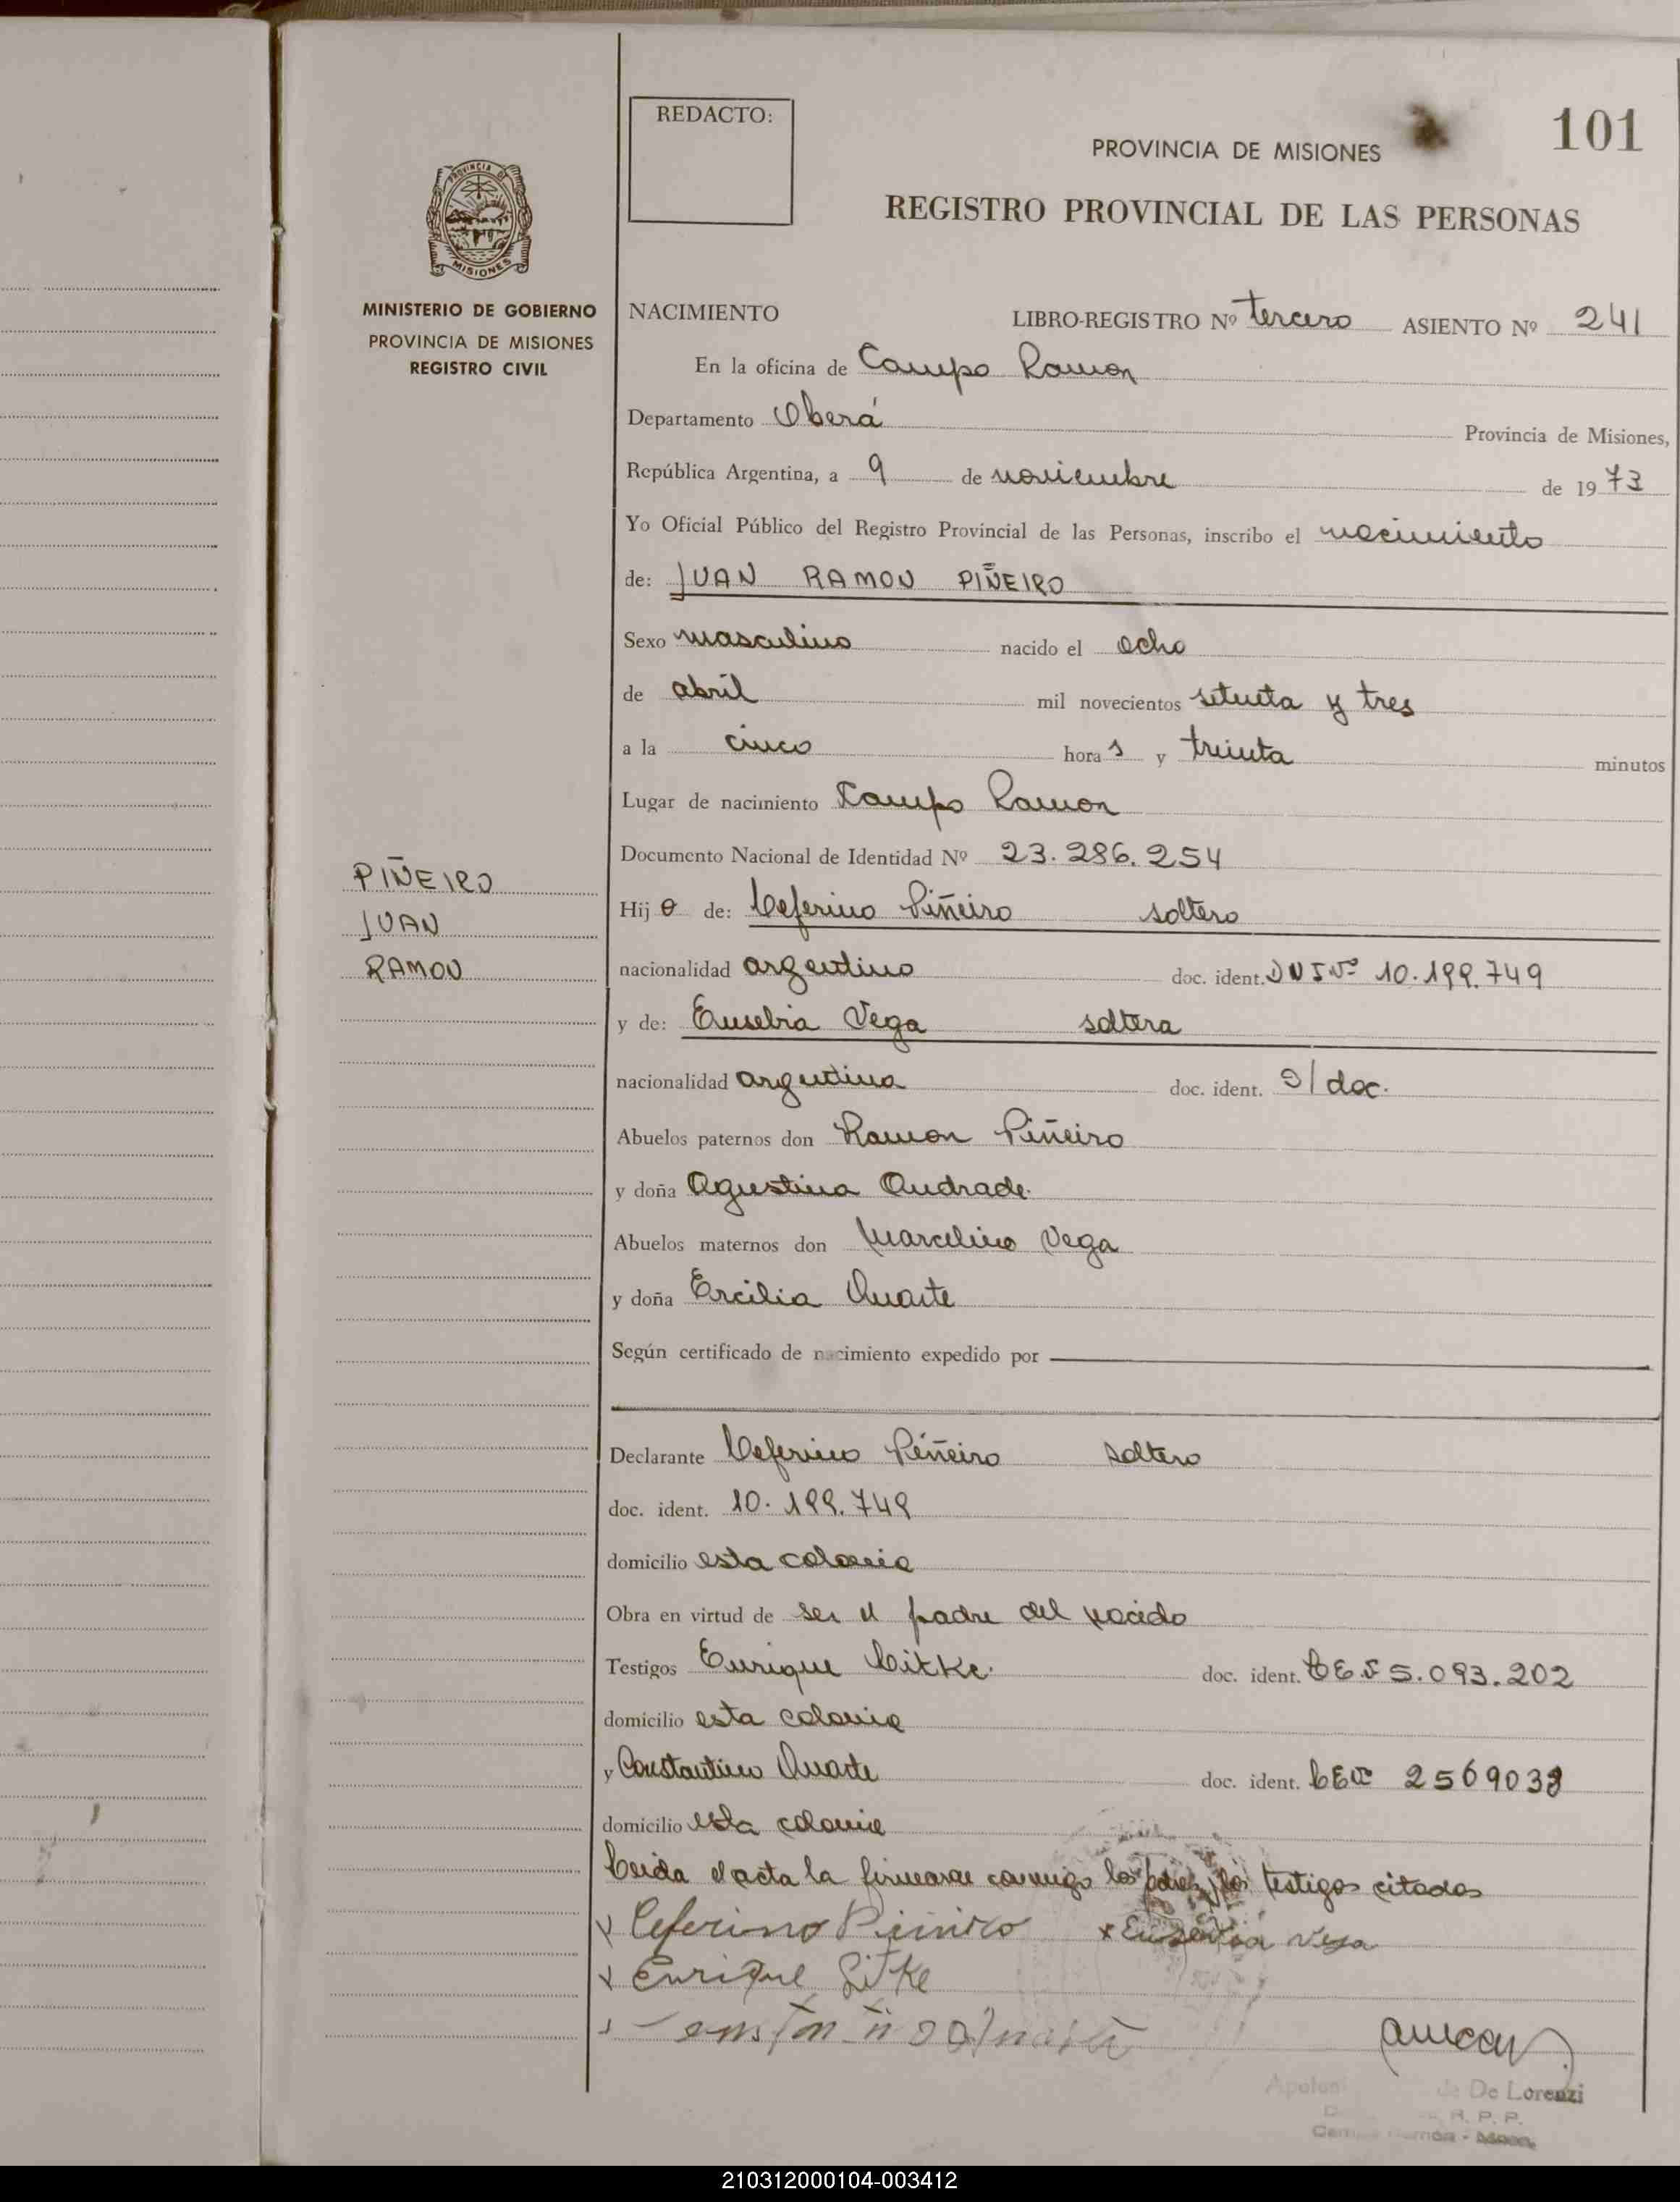 REDACTO:
101
PROVINCIA DE MISIONES
REGISTRO PROVINCIAL DE LAS PERSONAS
PROVINCIA DE
MISIONES
MINISTERIO DE GOBIERNO
PROVINCIA DE MISIONES
REGISTRO CIVIL
NACIMIENTO LIBRO-REGISTRO Nº tercero ASIENTO Nº 241
En la oficina de Campo Ramon
Departamento Oberá Provincia de Misiones,
República Argentina, a 9 de noviembre de 1973
Yo Oficial Público del Registro Provincial de las Personas, inscribo el nacimiento
de: JUAN RAMON PIÑEIRO
Sexo masculino nacido el ocho
de abril mil novecientos setenta y tres
a la cinco horas y treinta minutos
Lugar de nacimiento Campo Ramon
Documento Nacional de Identidad Nº 23.286.254
PIÑEIRO
JUAN
RAMON
Hijo de: Ceferino Piñeiro soltero
nacionalidad argentino doc. ident. DNI Nº 10.199.749
y de: Eusebia Vega soltera
nacionalidad argentina doc. ident. s/doc.
Abuelos paternos don Ramon Piñeiro
y doña Agustina Andrade
Abuelos maternos don Marcelino Vega
y doña Ercilia Duarte
Según certificado de nacimiento expedido por
Declarante Ceferino Piñeiro soltero
doc. ident. 10.199.749
domicilio esta colonia
Obra en virtud de ser el padre del nacido
Testigos Enrique Litke doc. ident. 5.093.202
domicilio esta colonia
y Constantino Duarte doc. ident. 2569038
domicilio esta colonia
Leida el acta la firmaron conmigo los padres, los testigos citados
x Ceferino Piñeiro x Eusebia Vega
x Enrique Litke
De Lorenzi
R. P. P.
210312000104-003412